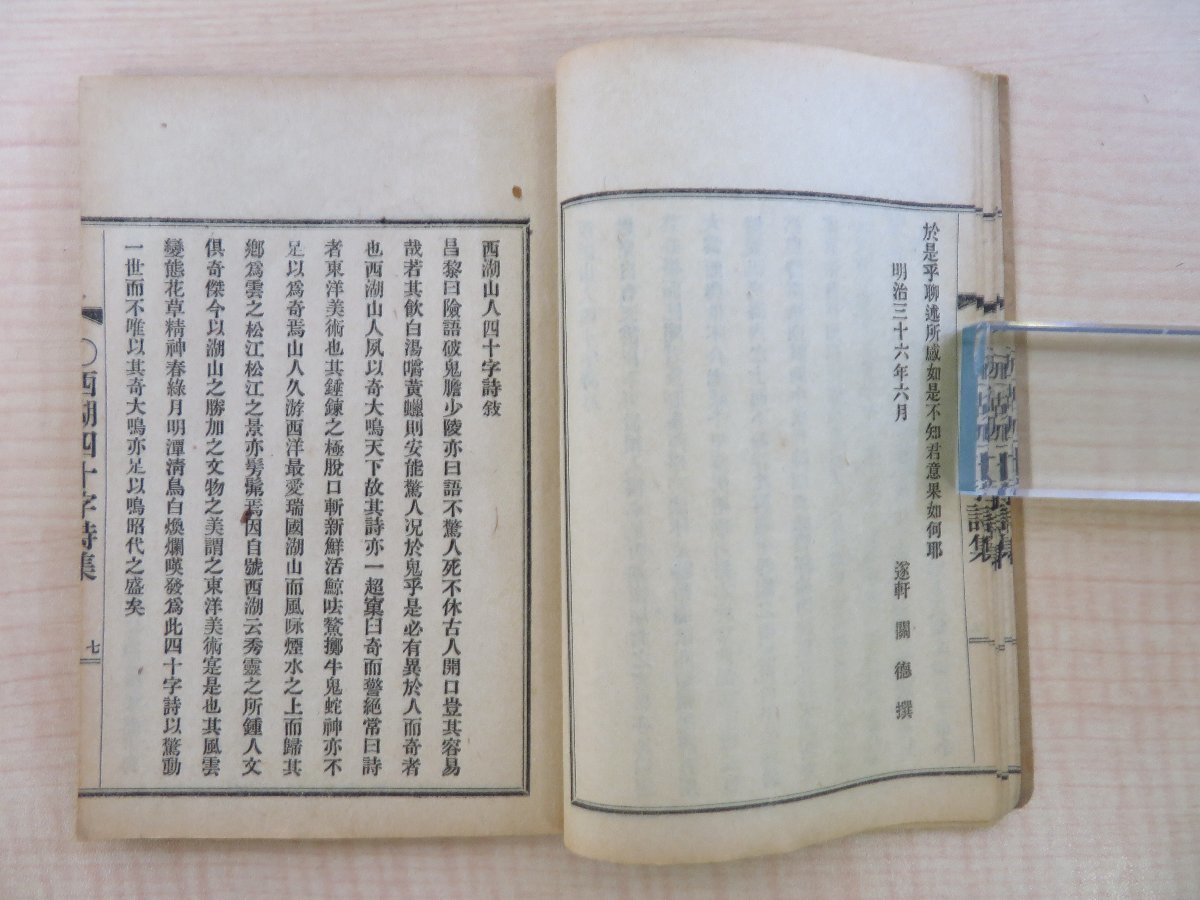 於是乎聊述所感如是不知君意果如何耶
明治三十六年六月
遂軒 關 德 撰
西湖山人四十字詩敍
昌黎曰險語破鬼膽少陵亦曰語不驚人死不休古人開口豈其容易
哉若其飮白湯嚼黃蠟則安能驚人况於鬼乎是必有異於人而奇者
也西湖山人夙以奇大鳴天下故其詩亦一超窠臼奇而警絕常曰詩
者東洋美術也其錘鍊之極脫口斬新鮮活鯨呿鰲擲牛鬼蛇神亦不
足以爲奇焉山人久游西洋最愛瑞國湖山而風咏煙水之上而歸其
鄉爲雲之松江松江之景亦髣髴焉因自號西湖云秀靈之所鍾人文
俱奇傑今以湖山之勝加之文物之美謂之東洋美術寔是也其風雲
變態花草精神春綠月明潭淸鳥白煥爛嘆發爲此四十字詩以驚動
一世而不唯以其奇大鳴亦足以鳴昭代之盛矣
〇西湖四十字詩集
七